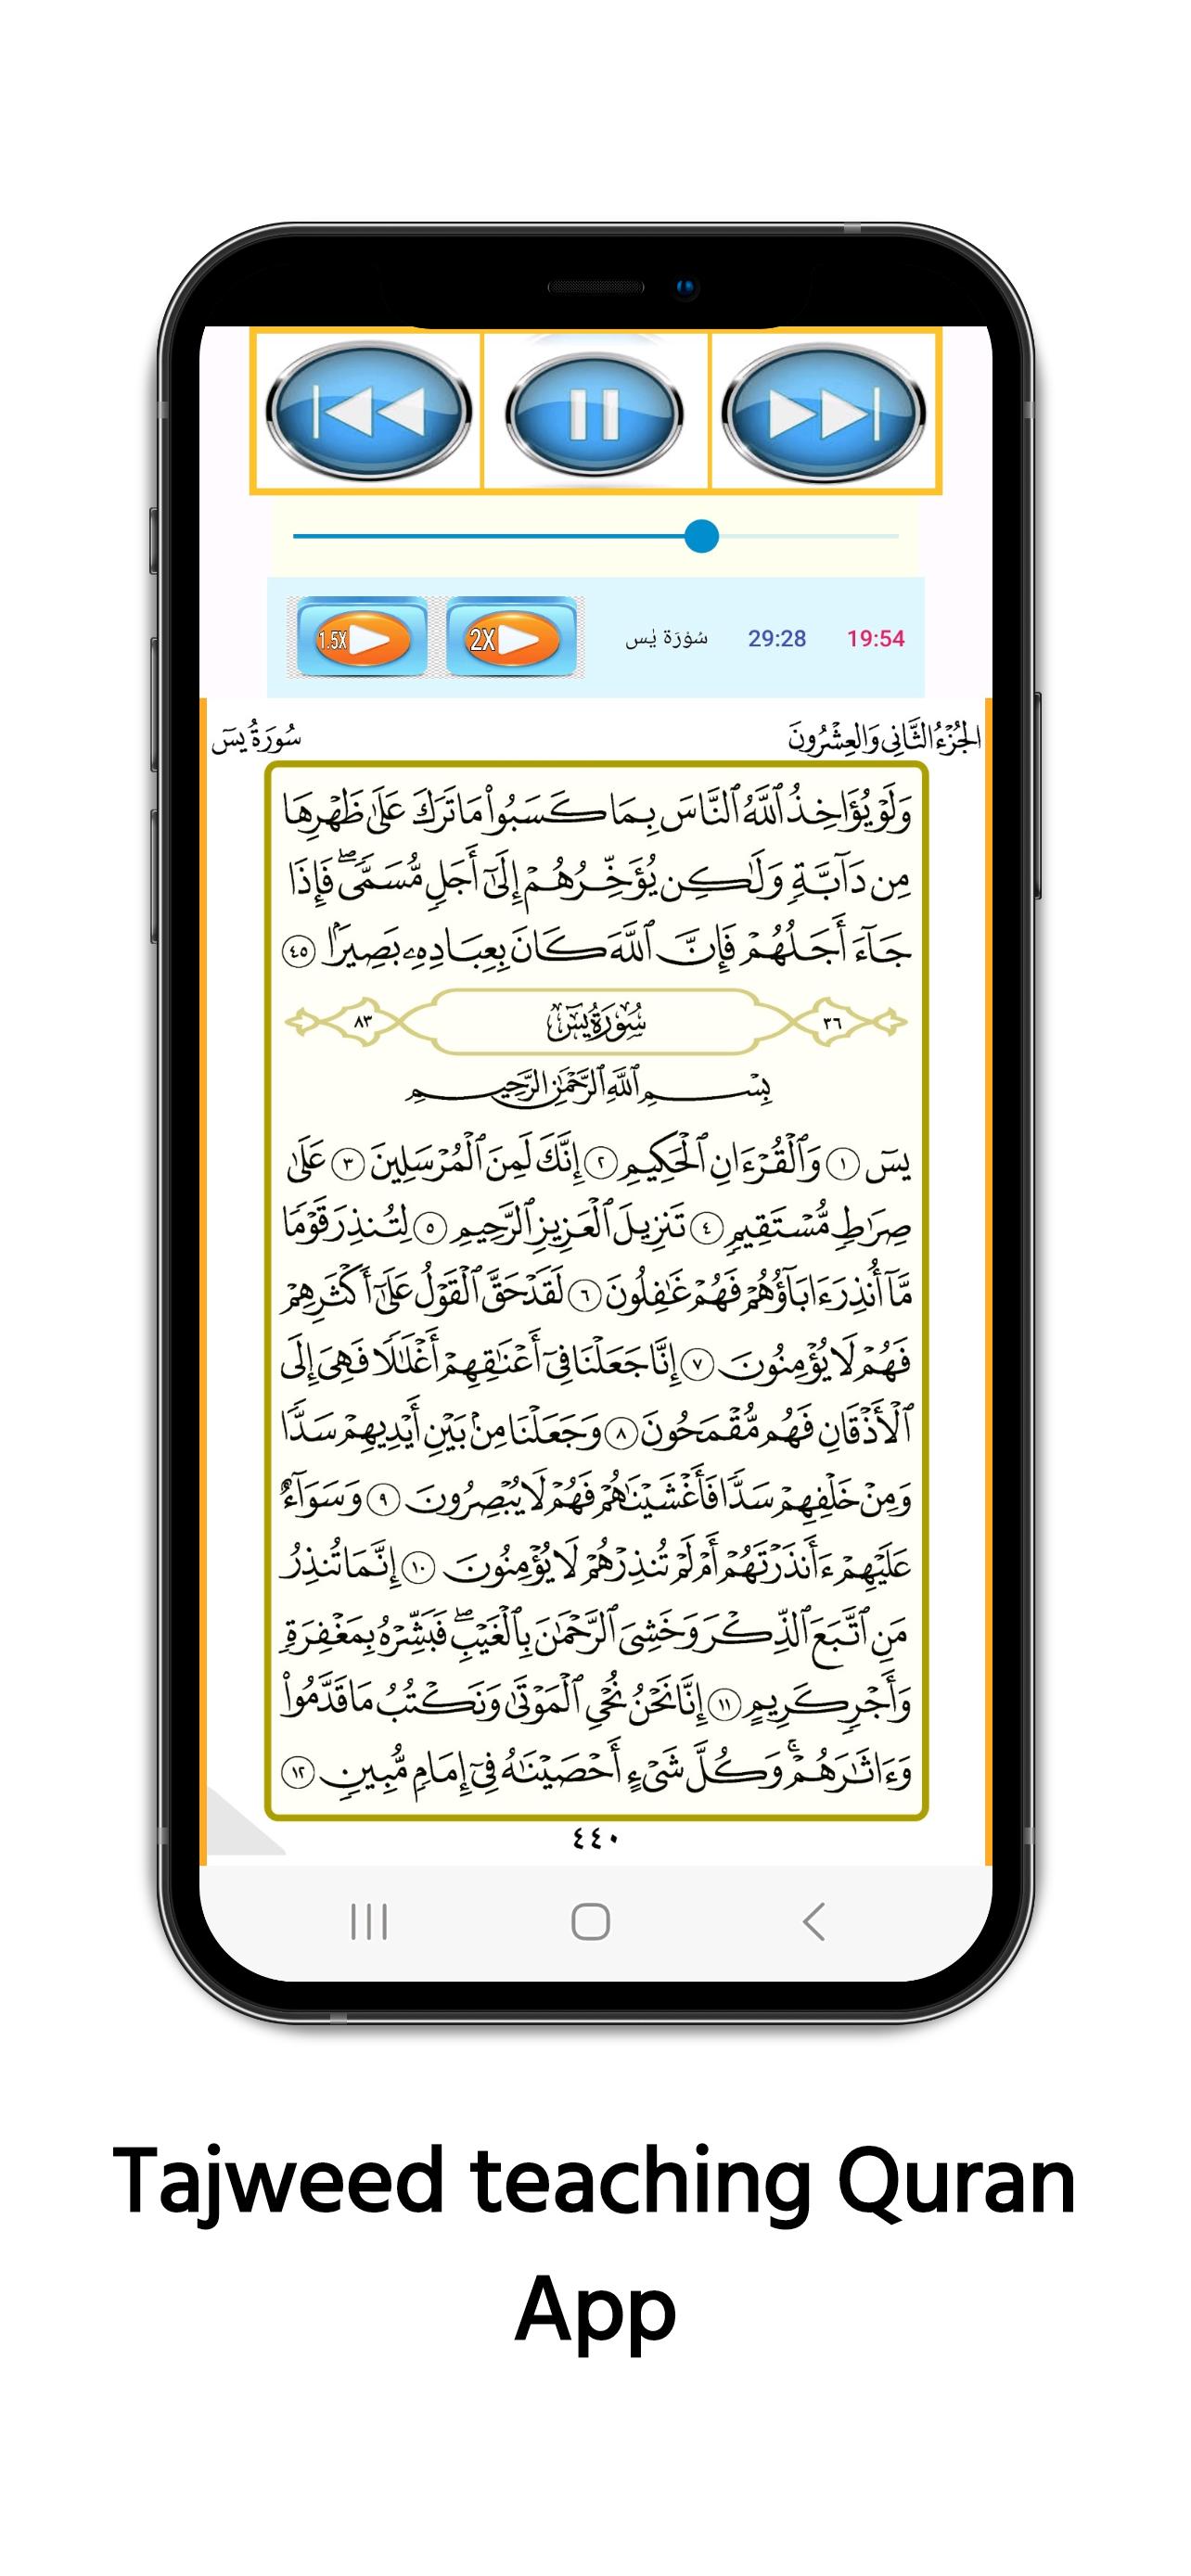 1.5X 2X سُوْرَة يٰس 29:28 19:54
الجُزْءُ الثَّانِي وَالعِشْرُونَ سُورَةُ يسٓ
وَلَوْ يُؤَاخِذُ ٱللَّهُ ٱلنَّاسَ بِمَا كَسَبُوا۟ مَا تَرَكَ عَلَىٰ ظَهْرِهَا
مِن دَآبَّةٍ وَلَٰكِن يُؤَخِّرُهُمْ إِلَىٰٓ أَجَلٍ مُّسَمًّى ۖ فَإِذَا
جَآءَ أَجَلُهُمْ فَإِنَّ ٱللَّهَ كَانَ بِعِبَادِهِۦ بَصِيرًۢا ٤٥
٣٦ سُورَةُ يسٓ ٨٣
بِسْمِ ٱللَّهِ ٱلرَّحْمَٰنِ ٱلرَّحِيمِ
يسٓ ١ وَٱلْقُرْءَانِ ٱلْحَكِيمِ ٢ إِنَّكَ لَمِنَ ٱلْمُرْسَلِينَ ٣ عَلَىٰ
صِرَٰطٍ مُّسْتَقِيمٍ ٤ تَنزِيلَ ٱلْعَزِيزِ ٱلرَّحِيمِ ٥ لِتُنذِرَ قَوْمًا
مَّآ أُنذِرَ ءَابَآؤُهُمْ فَهُمْ غَٰفِلُونَ ٦ لَقَدْ حَقَّ ٱلْقَوْلُ عَلَىٰٓ أَكْثَرِهِمْ
فَهُمْ لَا يُؤْمِنُونَ ٧ إِنَّا جَعَلْنَا فِىٓ أَعْنَٰقِهِمْ أَغْلَٰلًا فَهِىَ إِلَى
ٱلْأَذْقَانِ فَهُم مُّقْمَحُونَ ٨ وَجَعَلْنَا مِنۢ بَيْنِ أَيْدِيهِمْ سَدًّا
وَمِنْ خَلْفِهِمْ سَدًّا فَأَغْشَيْنَٰهُمْ فَهُمْ لَا يُبْصِرُونَ ٩ وَسَوَآءٌ
عَلَيْهِمْ ءَأَنذَرْتَهُمْ أَمْ لَمْ تُنذِرْهُمْ لَا يُؤْمِنُونَ ١٠ إِنَّمَا تُنذِرُ
مَنِ ٱتَّبَعَ ٱلذِّكْرَ وَخَشِىَ ٱلرَّحْمَٰنَ بِٱلْغَيْبِ ۖ فَبَشِّرْهُ بِمَغْفِرَةٍ
وَأَجْرٍ كَرِيمٍ ١١ إِنَّا نَحْنُ نُحْىِ ٱلْمَوْتَىٰ وَنَكْتُبُ مَا قَدَّمُوا۟
وَءَاثَٰرَهُمْ ۚ وَكُلَّ شَىْءٍ أَحْصَيْنَٰهُ فِىٓ إِمَامٍ مُّبِينٍ ١٢
٤٤٠
Tajweed teaching Quran
App